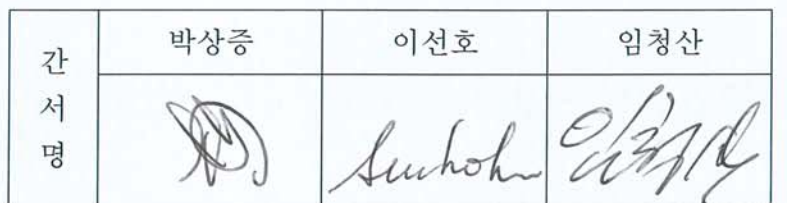 간서명
박상증 이선호 임청산
Sunhohn
임청산